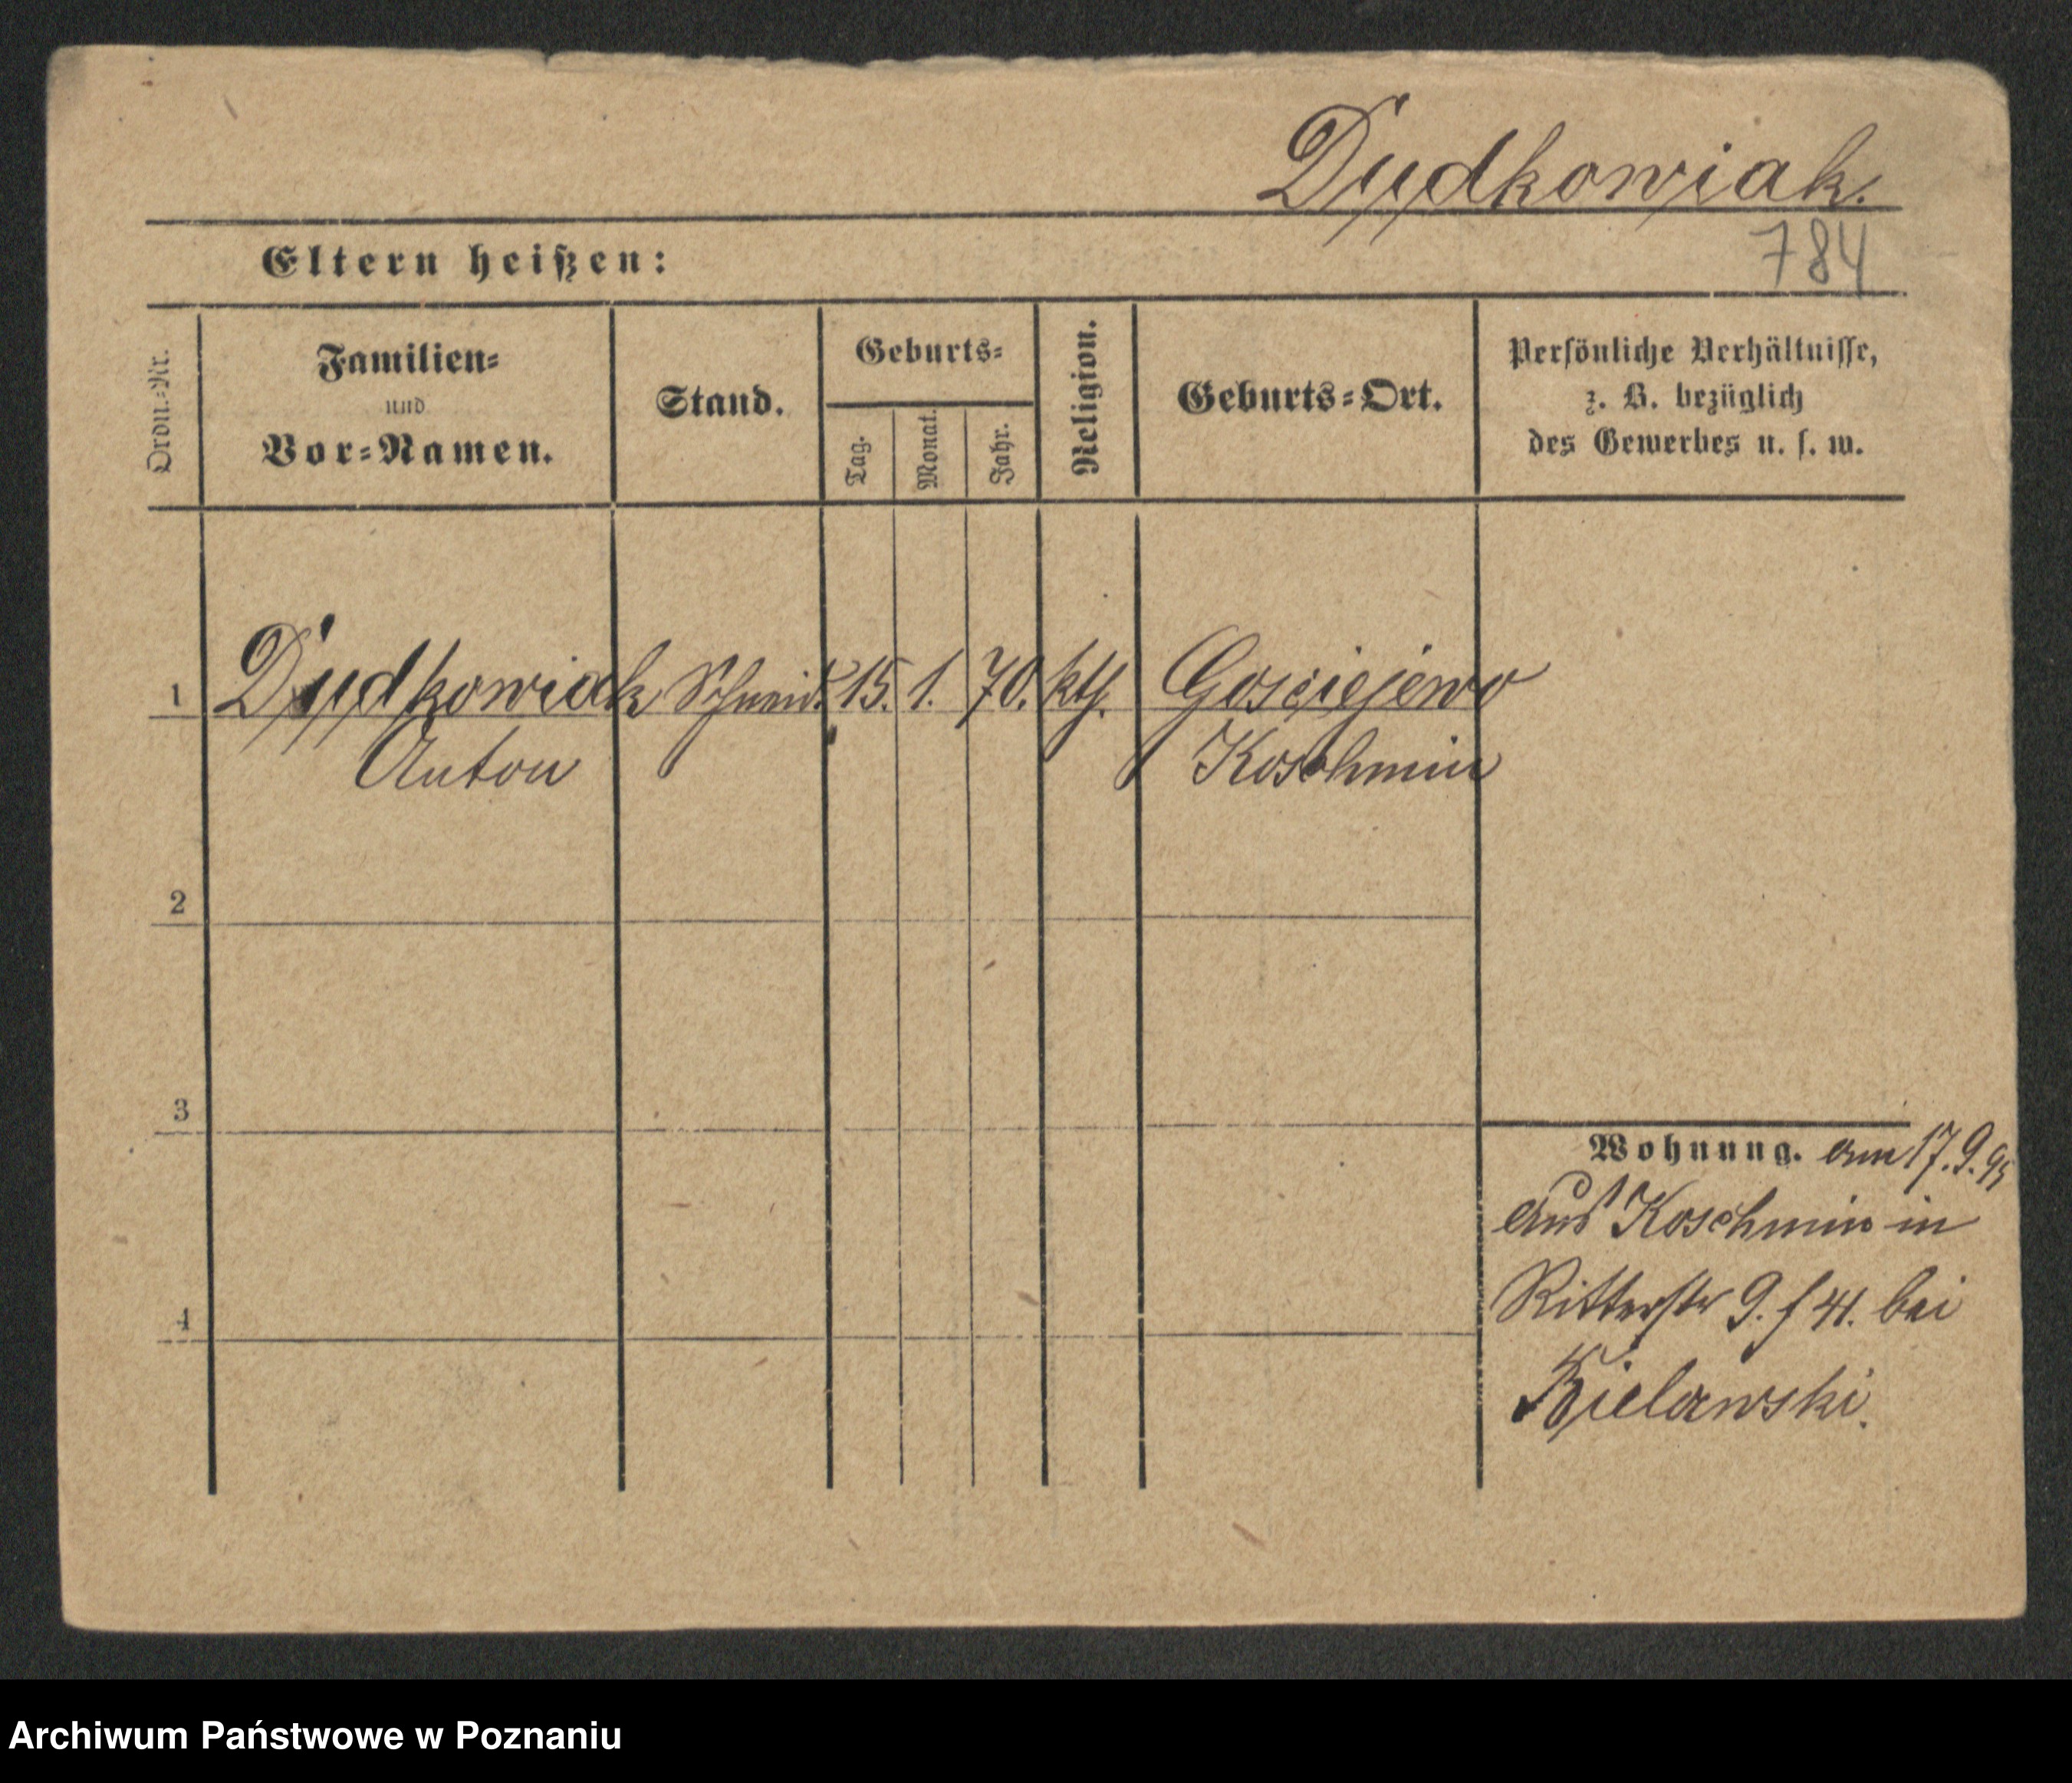 Dydkowiak.
784
Eltern heißen:
Ordn.-Nr.
Familien-
und
Vor-Namen.
Stand.
Geburts-
Tag.
Monat.
Jahr.
Religion.
Geburts-Ort.
Persönliche Verhältnisse,
z. B. bezüglich
des Gewerbes u. s. w.
1 Dydkowiak Schneid. 15. 1. 70. kth. Gosciejewo
Anton Koschmin
2
3
4
Wohnung. am 17. 9. 95
aus Koschmin in
Ritterstr 9. f 41. bei
Bielawski.
Archiwum Państwowe w Poznaniu